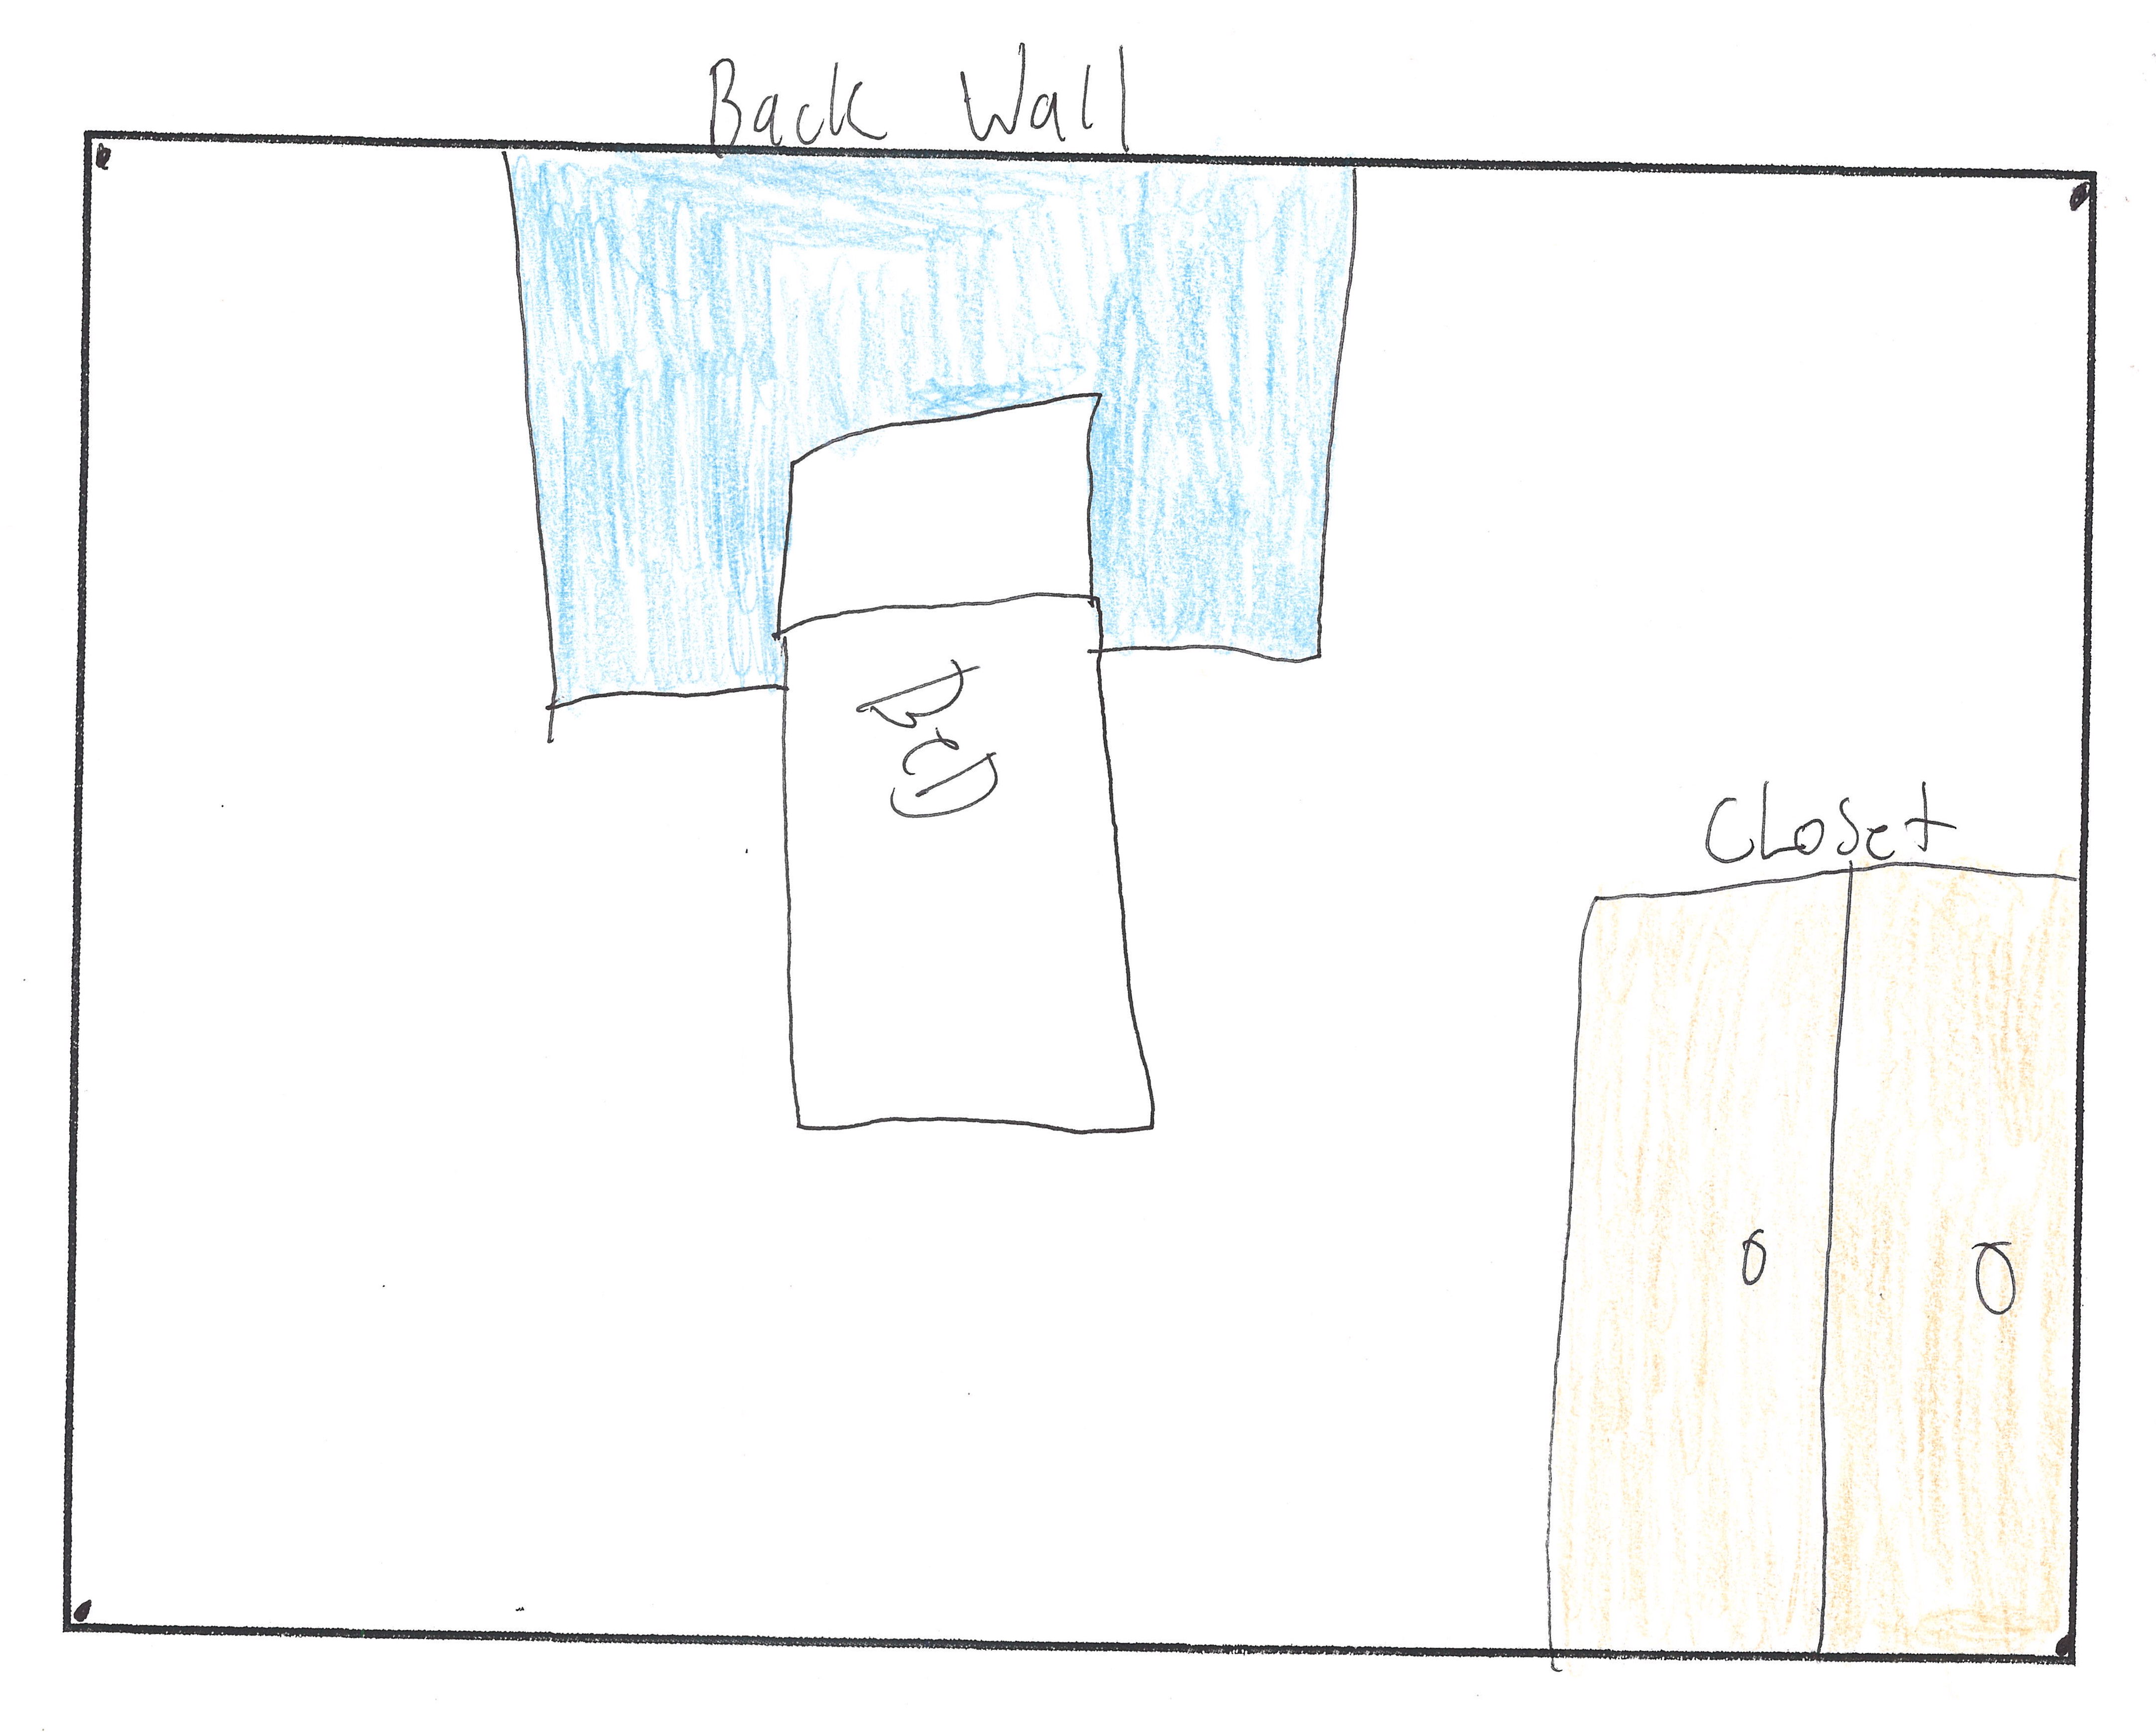 Back Wall
Bed
CLoset